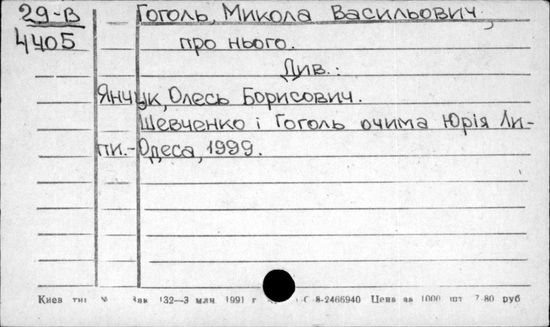 29-В Гоголь, Микола Васильович,
4405 про нього.
Див.:
Янчук, Олесь Борисович.
Шевченко і Гоголь очима Юрія Ли-
пи.-Одеса, 1999.
Киев Зак 132—3 млн 1991 г 8-2466940 Цена за 1000 шт 7-80 руб